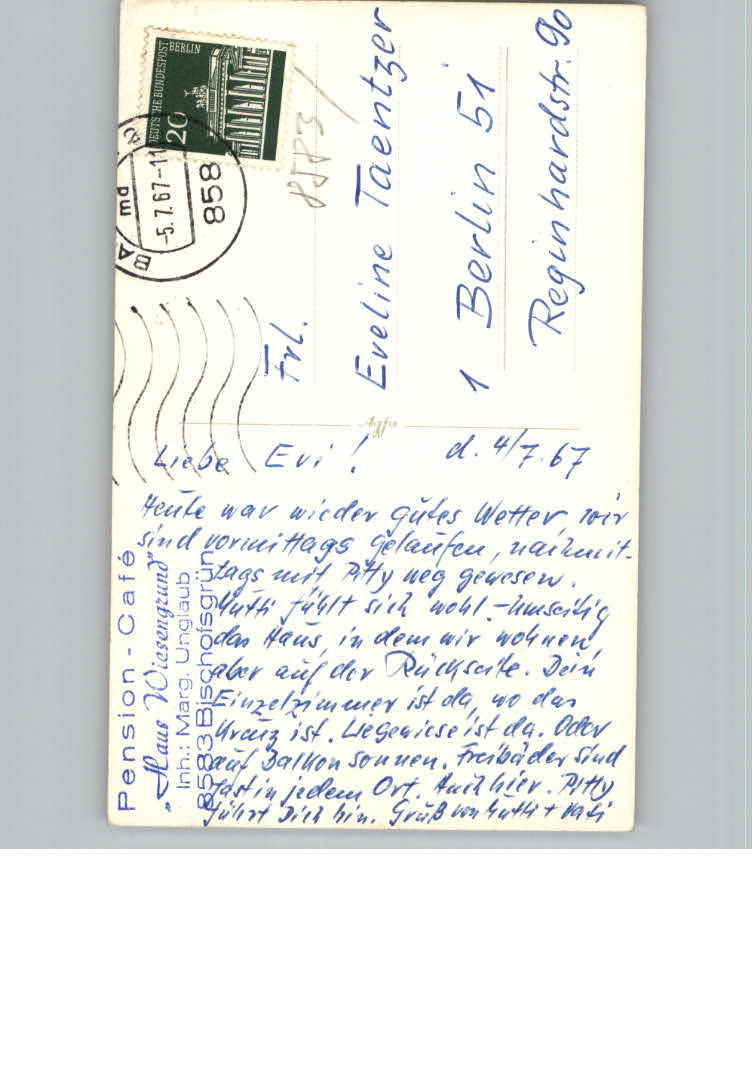 DEUTSCHE BUNDESPOST
BERLIN
20
-5.7.67-11
858
8583
Frl.
Eveline Taentzer
1 Berlin 51
Reginhardstr. 90
Agfa
d. 4/7.67
Liebe Evi!
Heute war wieder gutes Wetter, wir
sind vormittags gelaufen, nachmit-
tags mit Pitty weg gewesen.
Mutti fühlt sich wohl. - Umseitig
das Haus, in dem wir wohnen,
aber auf der Rückseite. Dein
Einzelzimmer ist da, wo das
Kreuz ist. Liegewiese ist da. Oder
auf Balkon sonnen. Freibäder sind
fast in jedem Ort. Auch hier. Pitty
führt Dich hin. Gruß von Mutti + Vati
Pension - Café
„Haus Wiesengrund"
Inh.: Marg. Unglaub
8583 Bischofsgrün